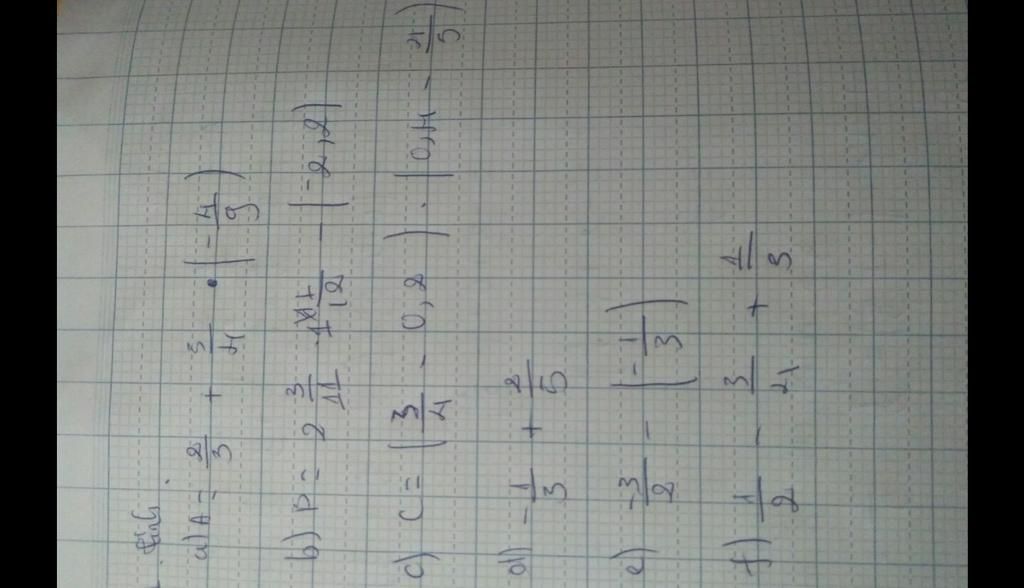 . Tính
a) A = 2/3 + 3/4 . (-4/9)
b) P = 2 3/11 . 1 1/12 - (-2,2)
c) C = (3/4 - 0,2) . (0,4 - 4/5)
d) -1/3 + 2/5
e) -3/2 - (-1/3)
f) 1/2 - 3/4 + 1/3